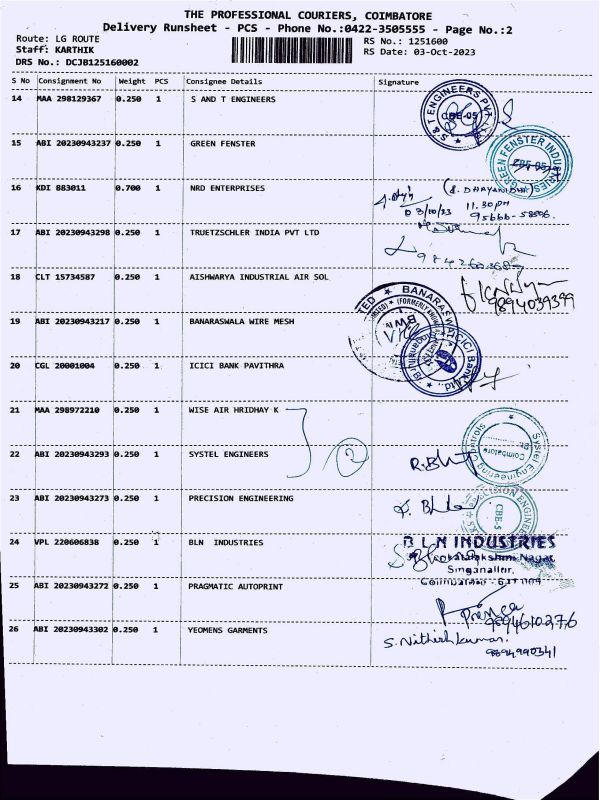 THE PROFESSIONAL COURIERS, COIMBATORE
Delivery Runsheet - PCS - Phone No.:0422-3505555 - Page No.:2
Route: LG ROUTE RS No.: 1251600
Staff: KARTHIK RS Date: 03-Oct-2023
DRS No.: DCJB125160002
S No Consignment No Weight PCS Consignee Details Signature
14 MAA 298129367 0.250 1 S AND T ENGINEERS
S & T ENGINEERS PVT
CBE-05
15 ABI 20230943237 0.250 1 GREEN FENSTER
GREEN FENSTER INDUSTRIES
CBE-05
16 KDI 883011 0.700 1 NRD ENTERPRISES
03/10/23 11.30 PM
17 ABI 20230943298 0.250 1 TRUETZSCHLER INDIA PVT LTD
18 CLT 15734587 0.250 1 AISHWARYA INDUSTRIAL AIR SOL
9894039399
19 ABI 20230943217 0.250 1 BANARASWALA WIRE MESH
BANARASWA
(FORMERLY KNOWN
BWM
20 CGL 20001004 0.250 1 ICICI BANK PAVITHRA
ICICI Bank Ltd.
21 MAA 298972210 0.250 1 WISE AIR HRIDHAY K
2
22 ABI 20230943293 0.250 1 SYSTEL ENGINEERS
Systel Engineering Controls
Coimbatore
23 ABI 20230943273 0.250 1 PRECISION ENGINEERING
CBE-5
24 VPL 220606838 0.250 1 BLN INDUSTRIES
B L N INDUSTRIES
Nagar,
Singanallur,
Coimbatore
25 ABI 20230943272 0.250 1 PRAGMATIC AUTOPRINT
9894610276
26 ABI 20230943302 0.250 1 YEOMENS GARMENTS
S. Nitheshkumar.
9894990341